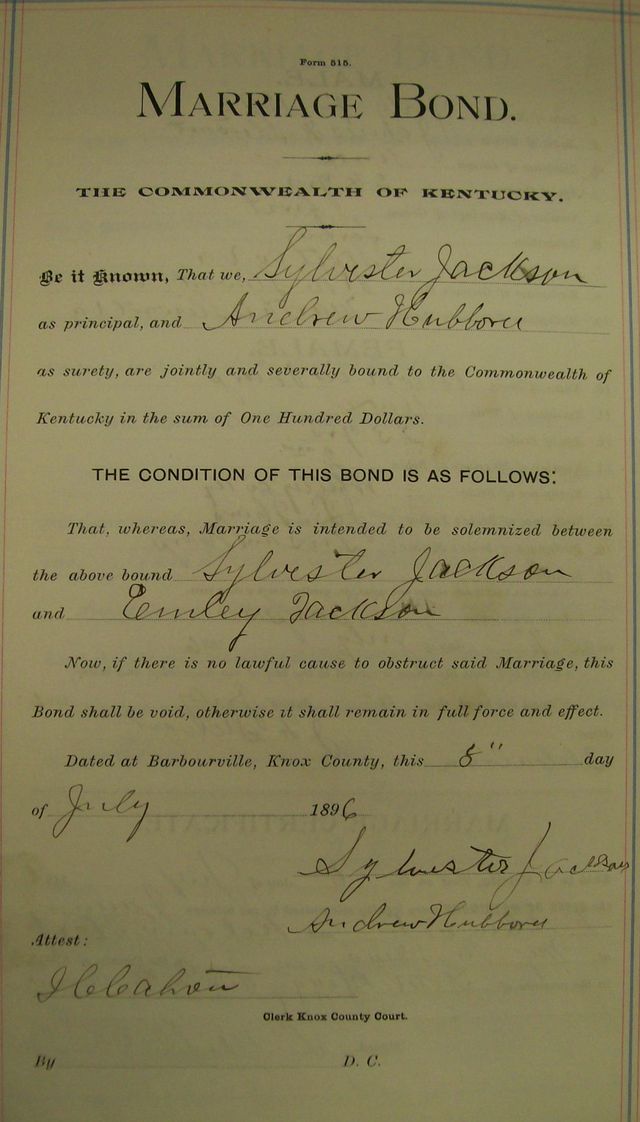 Form 515.
MARRIAGE BOND.
THE COMMONWEALTH OF KENTUCKY.
Be it Known, That we, Sylvester Jackson
as principal, and Andrew Hubbord
as surety, are jointly and severally bound to the Commonwealth of
Kentucky in the sum of One Hundred Dollars.
THE CONDITION OF THIS BOND IS AS FOLLOWS:
That, whereas, Marriage is intended to be solemnized between
the above bound Sylvester Jackson
and Emley Jackson
Now, if there is no lawful cause to obstruct said Marriage, this
Bond shall be void, otherwise it shall remain in full force and effect.
Dated at Barbourville, Knox County, this 8" day
of July 1896
Sylvester Jackson
Andrew Hubbord
Attest:
Clerk Knox County Court.
By D. C.